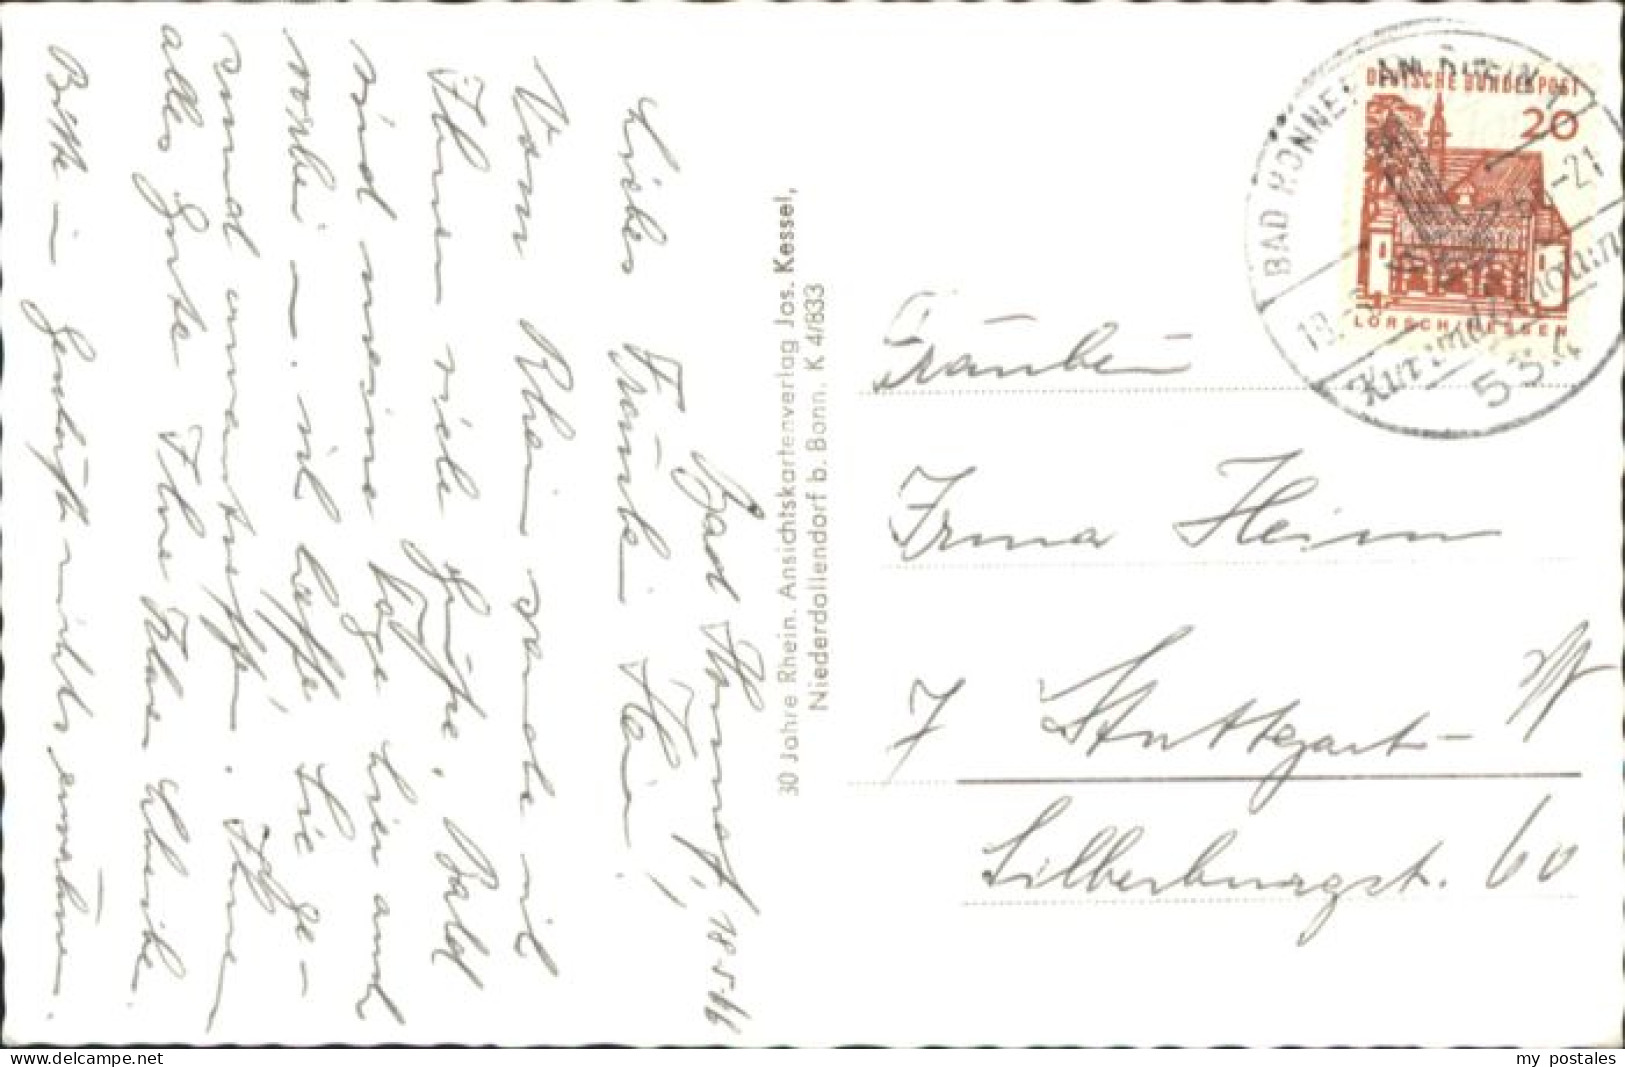 Bad Honnef, 18.5.66
Liebes Fräulein Heim!
Vom Rhein sende ich
Ihnen viele Grüße. Bald
sind meine Tage hier auch
vorbei – . ich hoffe, Sie ge-
sund anzutreffen. Ihnen
alles Gute Ihre
Bitte im Geschäft nichts erwähnen.
30 Jahre Rhein. Ansichtskartenverlag Jos. Kessel,
Niederdollendorf b. Bonn. K 4/833
DEUTSCHE BUNDESPOST
20
LORSCH/HESSEN
BAD HONNEF AM RHEIN
-21
534
Fräulein
Irma Heim
7 Stuttgart-W
Silberburgst. 60
my postales
https://www.delcampe.net